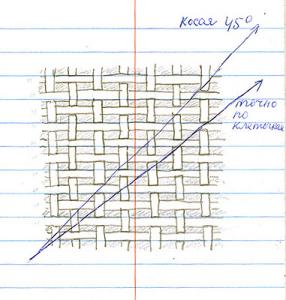 косая 45°
точно
по
клеточкам